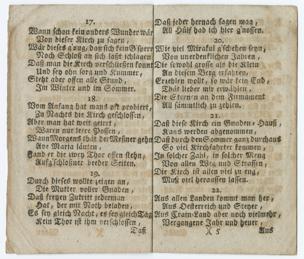 17.
Wann schon kein anders Wunder wär
Von dieser Kirch zu sagen,
Wär dieses gnug, daß sich kein Gsperr
Noch Schloß an sich läßt schlagen
Daß man die Kirch verschliessen könnt
Und sey ohn sorg und Kummer,
Steht aber offen alle Stund,
Im Winter und im Sommer.
18.
Von Anfang hat mans oft probiert,
Zu Nachts die Kirch geschlossen,
Aber man hat weit geirrt,
Waren nur leere Possen,
Wann Morgens thät der Meßner gehn
Ave Maria läuten,
Fand er die zwey Thor offen stehn,
Aufgschlossner beeder Seiten.
19.
Durch dieses wollte zeigen an,
Die Mutter voller Gnaden,
Daß freyen Zutritt jederman
Hat, der mit Noth beladen,
Es sey gleich Nacht, es sey gleich Tag
Kein Thor ist ihm verschlossen,
Daß
Daß jeder hernach sagen mag,
All Hülf hab ich hier gnossen.
20.
Wie viel Miracul gschehen seyn,
Von unerdenklichen Jahren,
Die sowohl grosse als die klein
An diesem Berg erfahren,
Erzehlen wollt, so wär kein End,
Thät lieber mir erwählen,
Die Stern an dem Firmament
All sämmtlich zu zehlen.
21.
Daß diese Kirch ein Gnaden-Hauß
Kans werden abgenommen,
Daß durch den Sommer ganz durchaus
So viel Kirchfahrt kommen,
In solcher Zahl, in solcher Meng
Von allen Weg und Strassen,
Die Kirch ist allen viel zu eng,
Muß viel heraussen lassen.
22.
Aus allen Landen kommt man her,
Aus Oesterreich und Steyer,
Aus Crain-Land aber noch vielmehr,
Vergangene Jahr und heuer,
A 5
Aus